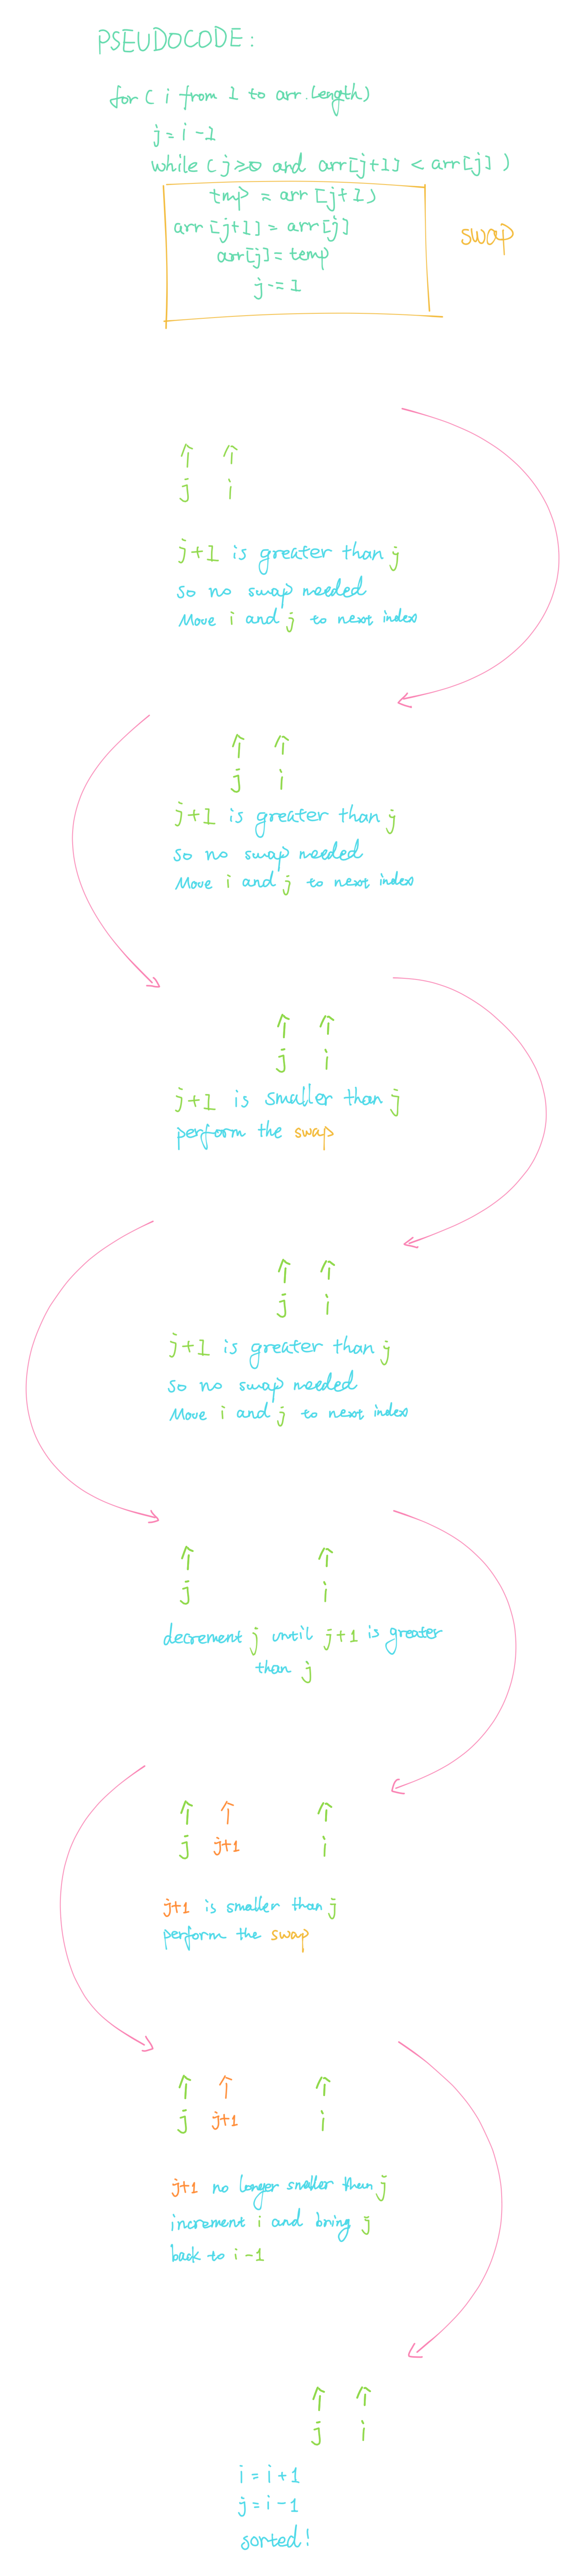 PSEUDOCODE:
for ( i from 1 to arr.length)
j = i -1
while ( j≥0 and arr[j+1] < arr[j] )
tmp = arr [j+1)
arr [j+1] = arr[j]
arr[j] = temp
j -= 1
swap
j i
j+1 is greater than j
so no swap needed
Move i and j to next index
j i
j+1 is greater than j
so no swap needed
Move i and j to next index
j i
j+1 is smaller than j
perform the swap
j i
j+1 is greater than j
so no swap needed
Move i and j to next index
j i
decrement j until j+1 is greater
than j
j j+1 i
j+1 is smaller than j
perform the swap
j j+1 i
j+1 no longer smaller than j
increment i and bring j
back to i -1
j i
i = i+1
j = i -1
sorted!